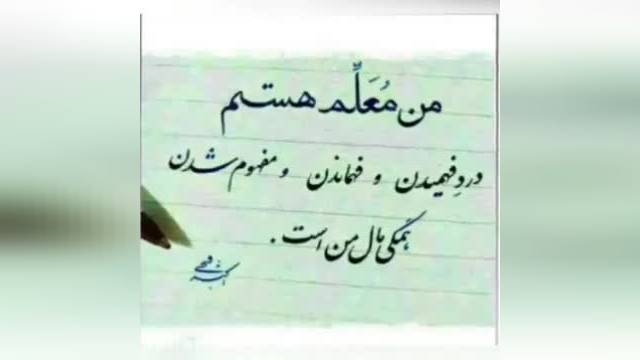 من مُعَلِّم هستم
دردِ فهمیدن و فهماندن و مفهوم شدن
همگی مال من است.